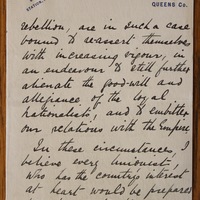 Station,
QUEENS Co.
rebellion, are in such a case
bound to re-assert themselves
with increasing vigour, in
an endeavour to still further
alienate the good-will and
allegiance of the loyal
nationalists, and to embitter
our relations with the Empire
In these circumstances, I
believe every unionist,
who has the country's interest
at heart would be prepared